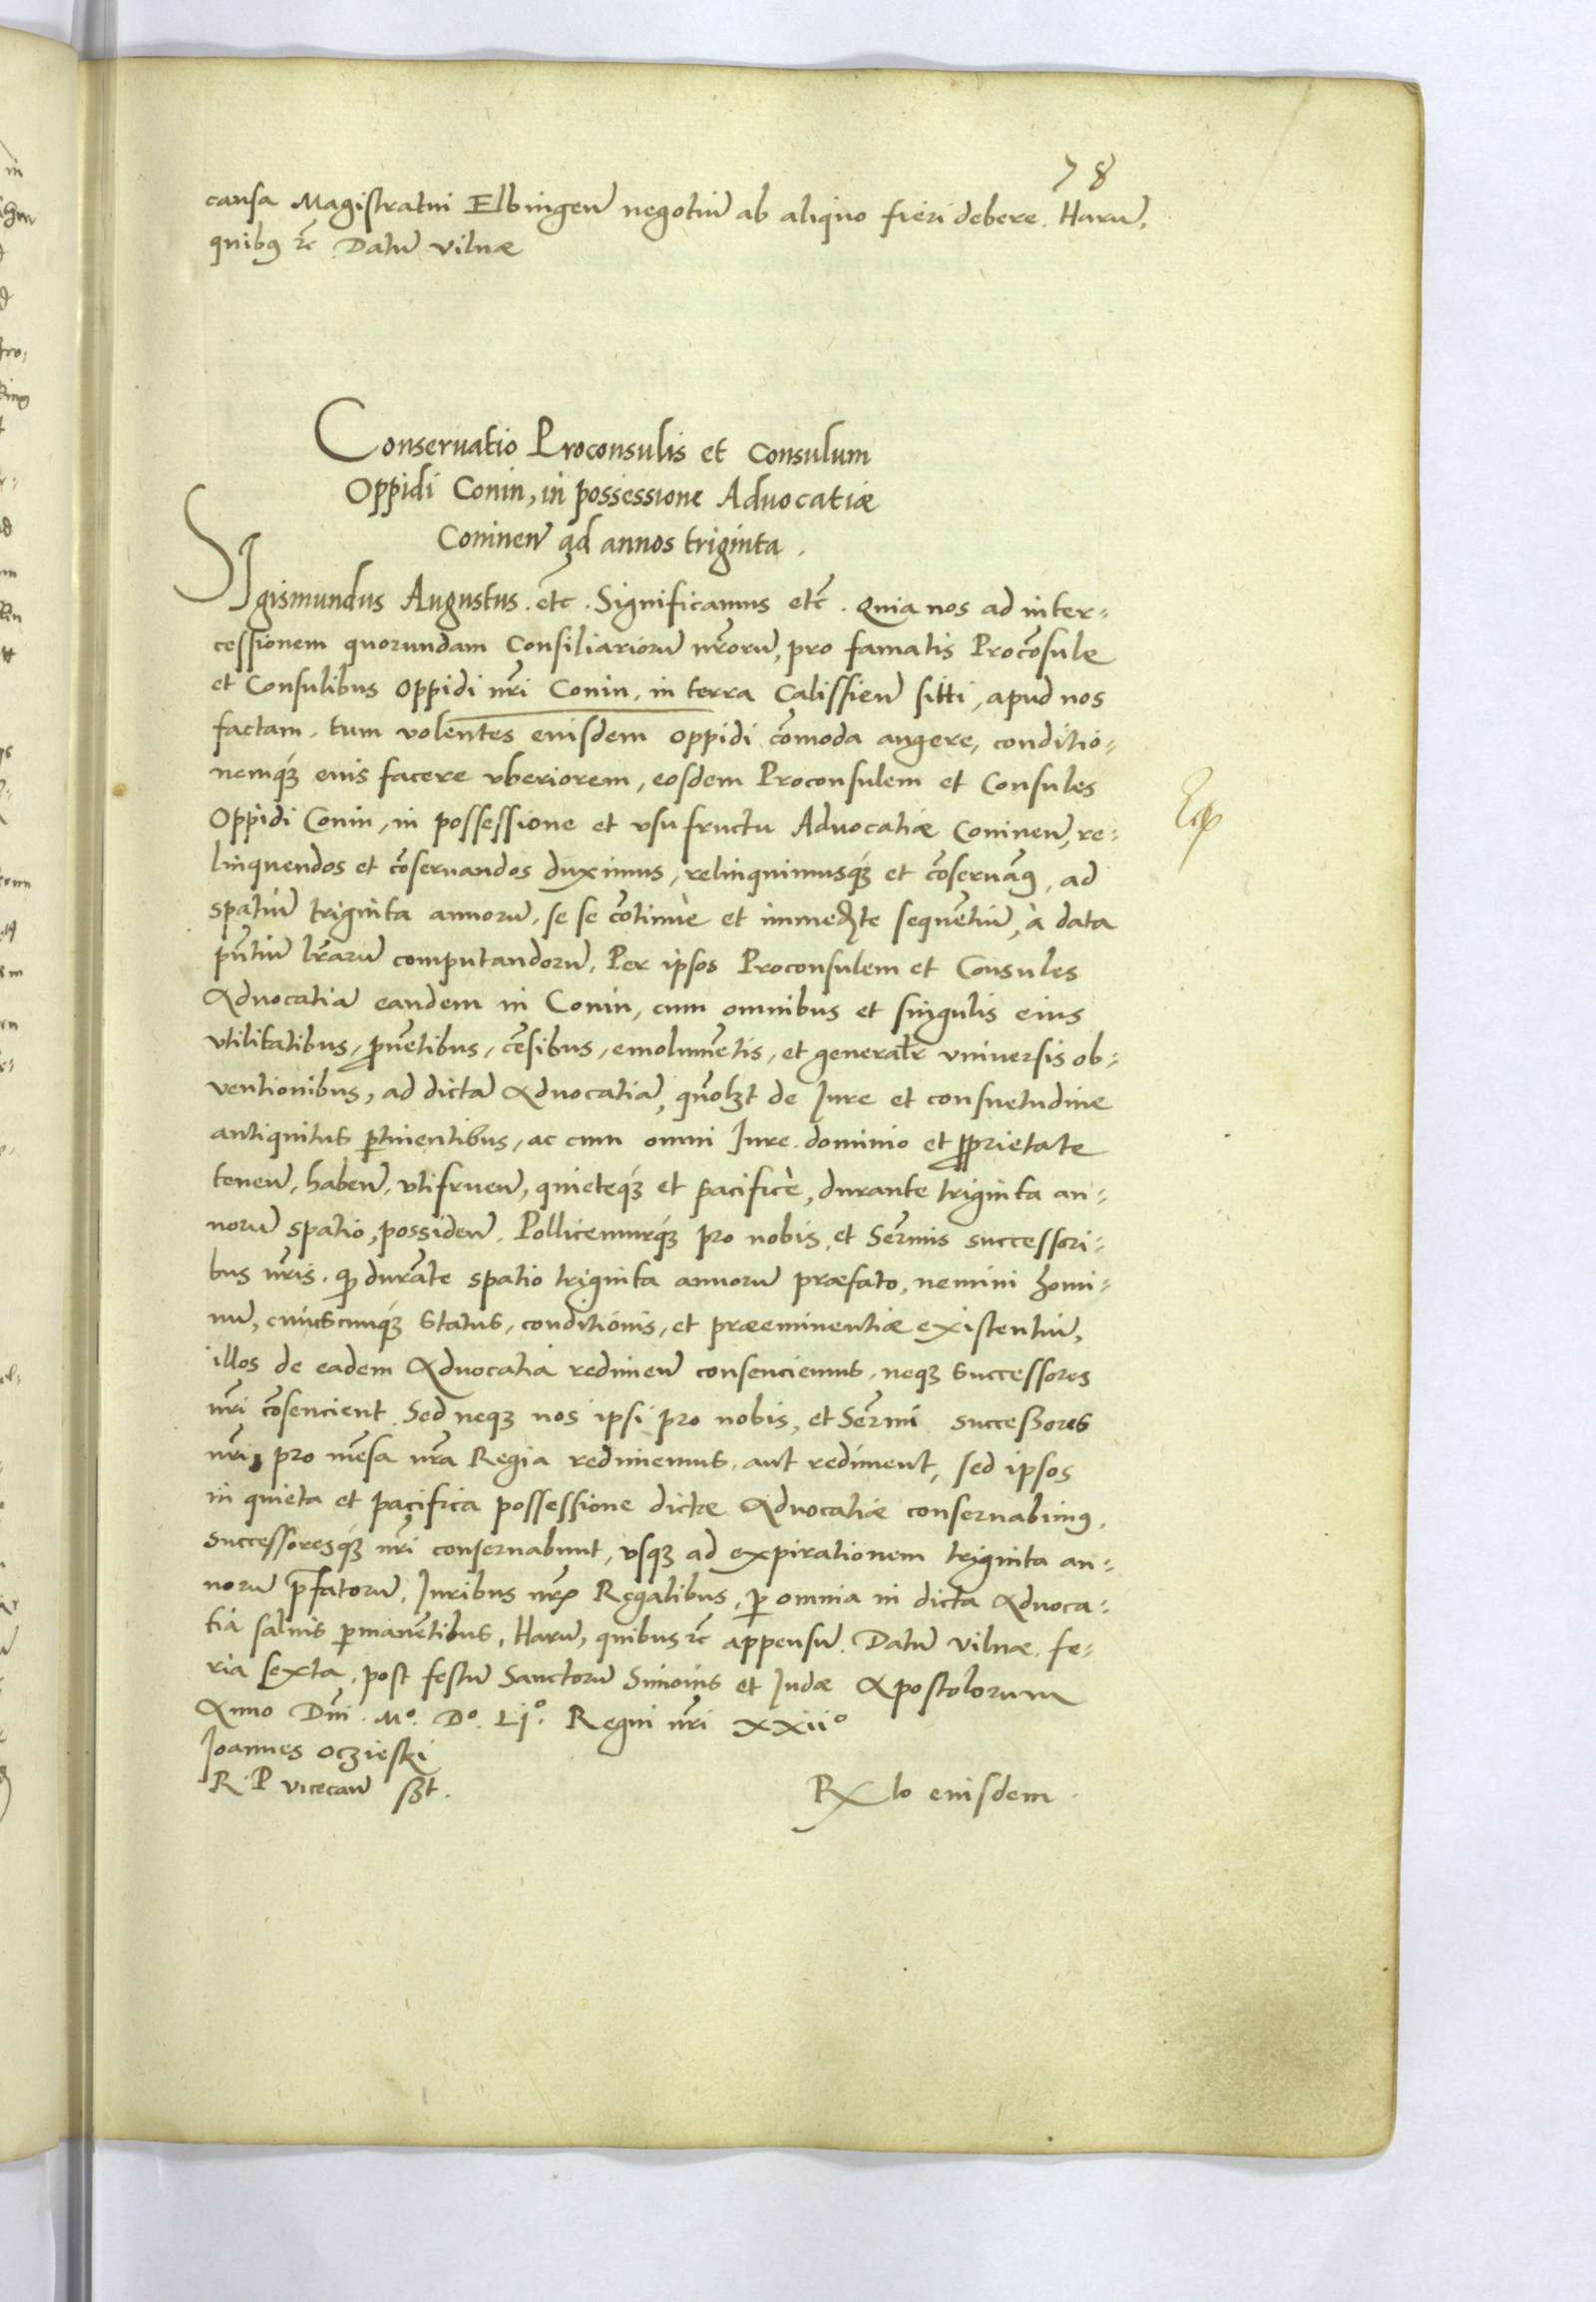 78
causa Magistratui Elbingen̄ negotiū ab aliquo fieri debere. Harū,
quibꝰ ꝛc Datū Vilnæ
Conseruatio Proconsulis et Consulum
Oppidi Conin, in possessione Aduocatiæ
Coninen̄ ad annos triginta.
SIgismundus Augustus. etc̄. Significamus etc̄. Quia nos ad inter-
cessionem quorundam Consiliariorū nr̄orū, pro famatis Procōsule
et Consulibus Oppidi nr̄i Conin, in terra Calissien̄ sitti, apud nos
factam, tum volentes eiusdem oppidi cōmoda augere, conditio-
nemqꝫ eius facere vberiorem, eosdem Proconsulem et Consules
Oppidi Conin, in possessione et vsufructu Aduocatiæ Coninen̄, re-
linquendos et cōseruandos duximus, relinquimusqꝫ et cōseruam̄ꝰ, ad
spatiū triginta annorū, se se cōtinuè et immedꝫte sequētiū, à data
pn̄tiū lr̄arū computandorū. Per ipsos Proconsulem et Consules
Aduocatiā eandem in Conin, cum omnibus et singulis eius
vtilitatibus, ꝓuētibus, cēsibus, emolumētis, et generalr̄ vniuersis ob-
ventionibus, ad dictā Aduocatiā, quōlꝫt de Jure et consuetudine
antiquitus ꝑtinentibus, ac cum omni Jure. dominio et ꝓprietate
tenen̄, haben̄, vtifruen̄, quieteqꝫ et pacificè, durante triginta an-
norū spatio, possiden̄. Pollicemurqꝫ pro nobis, et Serm̄is successori-
bus nr̄is. ꝙ durāte spatio triginta annorū præfato, nemini homi-
nū, cuiuscunqꝫ status, conditionis, et præeminentiæ existentiū,
illos de eadem Aduocatia redimen̄ consenciemus, neqꝫ successores
nr̄i cōsencient. Sed neqꝫ nos ipsi pro nobis, et Serm̄i successores
nr̄i, pro mēsa nr̄a Regia redimemus, aut rediment, sed ipsos
in quieta et pacifica possessione dictæ Aduocatiæ conseruabimꝰ,
successoresqꝫ nr̄i conseruabunt, vsqꝫ ad expirationem triginta an-
norū p̄fatorū. Juribus nr̄is Regalibus, ꝑ omnia in dicta Aduoca-
tia saluis ꝑmanētibus. Harū, quibus ꝛc appensū. Datū Vilnæ. fe-
ria sexta, post festū Sanctorū Simonis et Judæ Apostolorum
Anno Dn̄i. Mº. Dº. Ljº. Regni nr̄i xxiiº
Joannes Oczieski
R. P. Vicecan̄ sꝫt.
Rlo eiusdem.